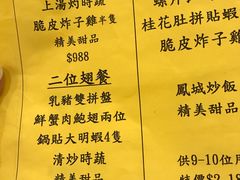 上湯灼時蔬
脆皮炸子雞半隻
精美甜品
$988
二位翅餐
乳豬雙拼盤
鮮蟹肉鮑翅兩位
鍋貼大明蝦4隻
清炒時蔬
桂花肚拼貼蝦
脆皮炸子
鳳城炒飯
精美甜品
供9-10位用